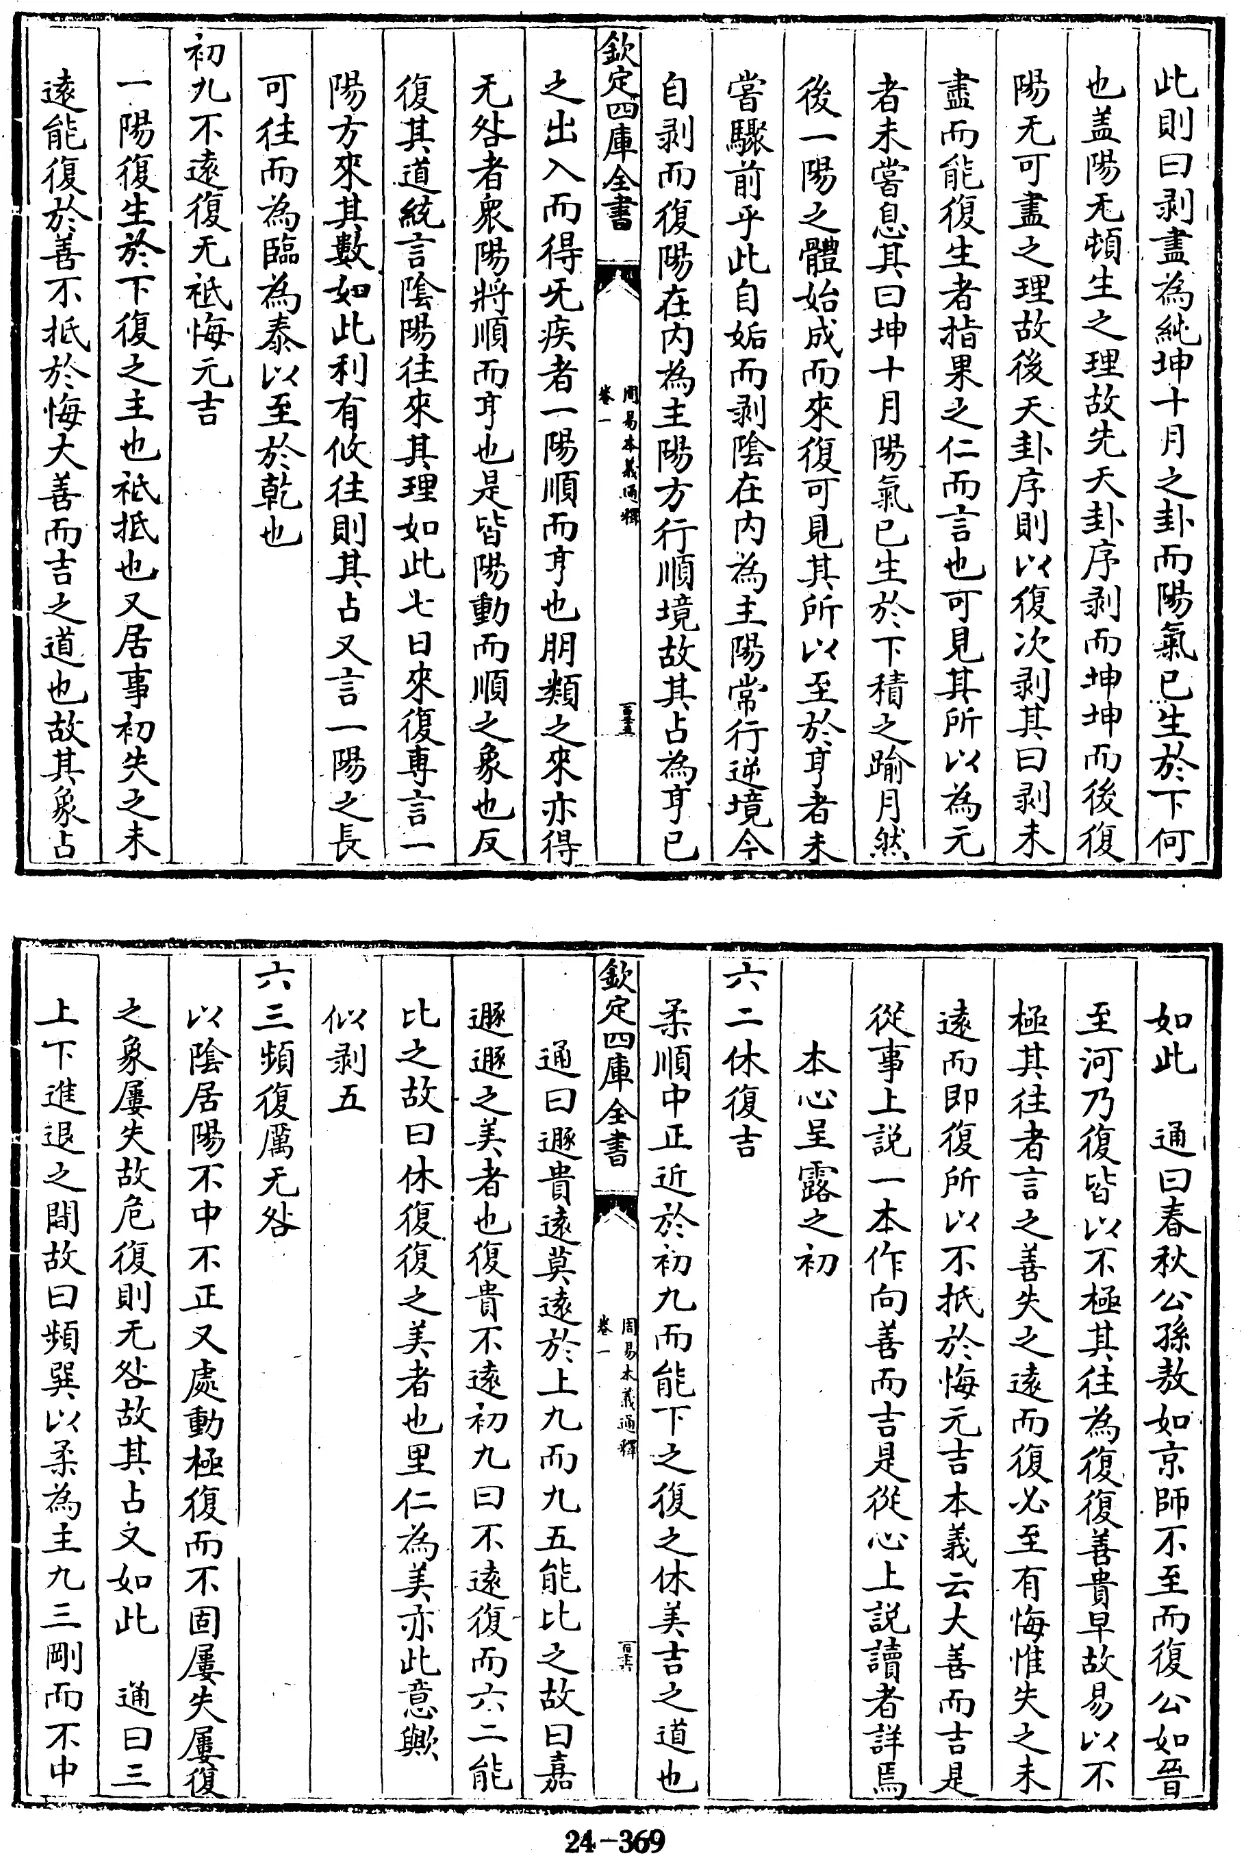 此則曰剥盡為純坤十月之卦而陽氣已生於下何
也盖陽无頓生之理故先天卦序剥而坤坤而後復
陽无可盡之理故後天卦序則以復次剥其曰剥未
盡而能復生者指果之仁而言也可見其所以為元
者未嘗息其曰坤十月陽氣已生於下積之踰月然
後一陽之體始成而來復可見其所以至於亨者未
嘗驟前乎此自姤而剥陰在内為主陽常行逆境今
自剥而復陽在内為主陽方行順境故其占為亨已
欽定四庫全書
周易本義通釋
卷一
百十五
之出入而得无疾者一陽順而亨也朋類之來亦得
无咎者衆陽將順而亨也是皆陽動而順之象也反
復其道統言陰陽往來其理如此七日來復専言一
陽方來其數如此利有攸往則其占又言一陽之長
可往而為臨為泰以至於乾也
初九不逺復无祗悔元吉
一陽復生於下復之主也祗抵也又居事初失之未
逺能復於善不抵於悔大善而吉之道也故其象占
如此　通曰春秋公孫敖如京師不至而復公如晉
至河乃復皆以不極其往為復復善貴早故易以不
極其往者言之善失之逺而復必至有悔惟失之未
逺而即復所以不抵於悔元吉本義云大善而吉是
從事上説一本作向善而吉是從心上説讀者詳焉
本心呈露之初
六二休復吉
柔順中正近於初九而能下之復之休美吉之道也
欽定四庫全書
周易本義通釋
卷一
百十六
通曰遯貴逺莫逺於上九而九五能比之故曰嘉
遯遯之美者也復貴不逺初九曰不逺復而六二能
比之故曰休復復之美者也里仁為美亦此意歟
似剥五
六三頻復厲无咎
以陰居陽不中不正又處動極復而不固屢失屢復
之象屢失故危復則无咎故其占又如此　通曰三
上下進退之間故曰頻巽以柔為主九三剛而不中
24-369